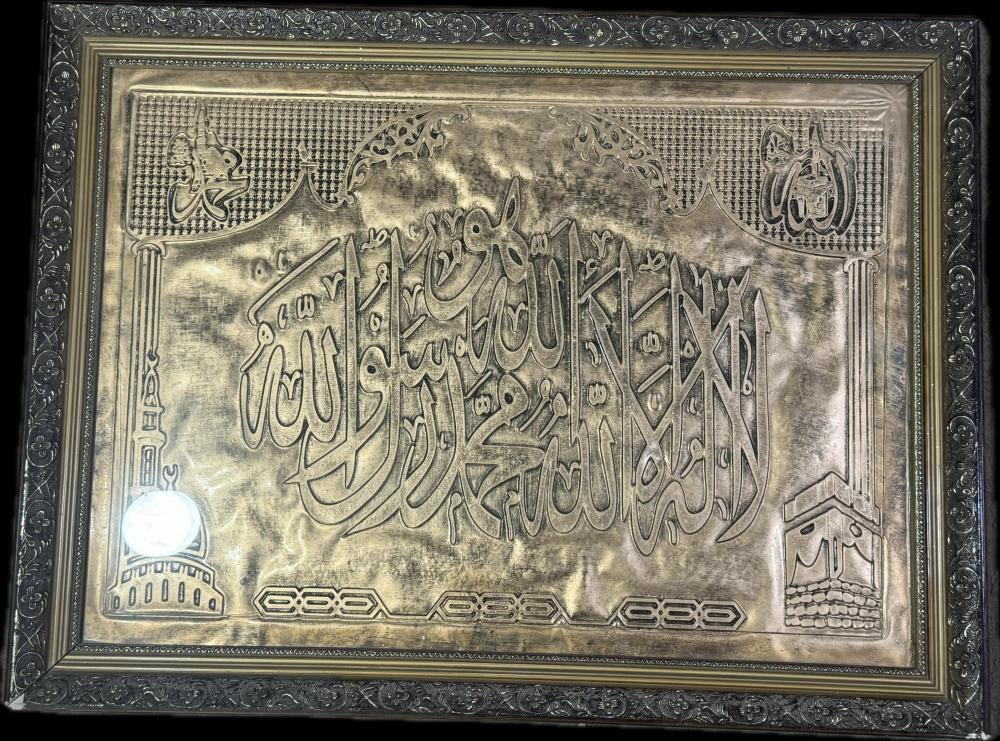 الله
محمد
لا إله إلا الله محمد رسول الله